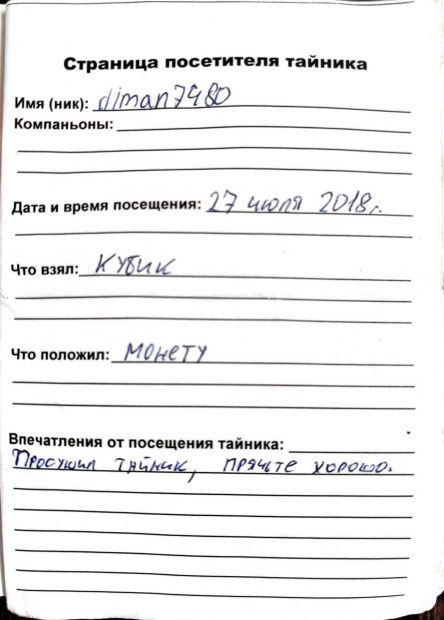 Страница посетителя тайника
Имя (ник): diman7480
Компаньоны:
Дата и время посещения: 27 июля 2018г.
Что взял: Кубик
Что положил: монету
Впечатления от посещения тайника:
Просушил тайник, прячьте хорошо.